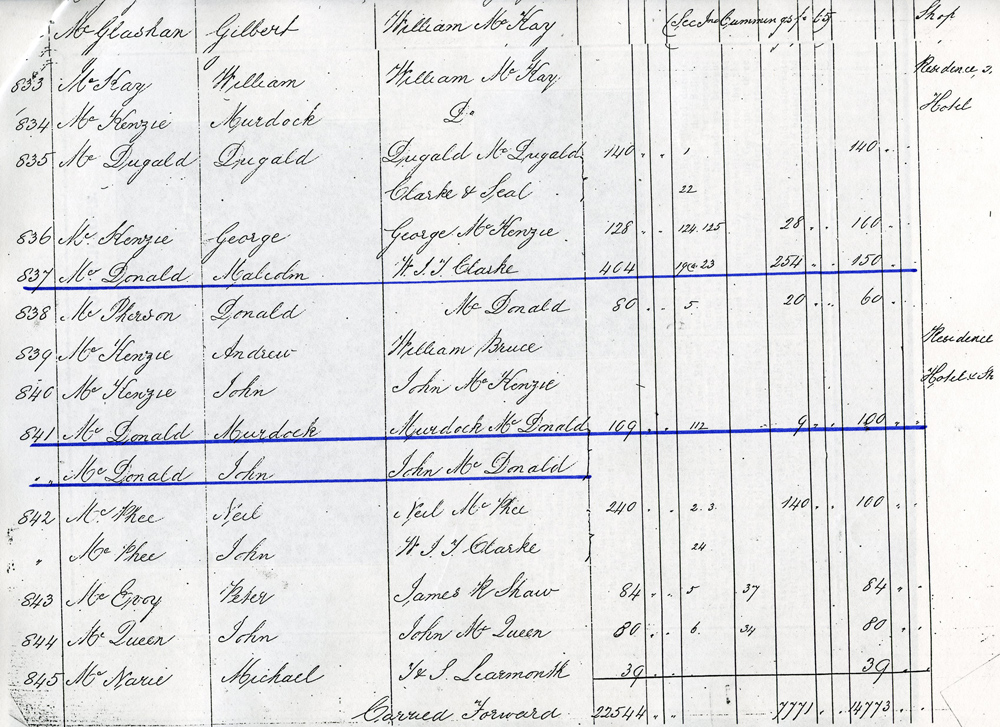 Mc Glashan Gilbert William Mc Kay (See Cummings fo 65 Shop
833 Mc Kay William William Mc Kay Residence
834 Mc Kenzie Murdock Do Hotel
835 Mc Dugald Dugald Dugald Mc Dugald 140 " " 1 140 " "
Clarke & Seal 22
836 Mc Kenzie George George Mc Kenzie 128 " " 124.125 28 " " 100 " "
837 Mc Donald Malcolm W. J. T. Clarke 404 " " 23 254 " " 150 " "
838 Mc Pherson Donald Mc Donald 80 " " 5. 20 " " 60 " "
839 Mc Kenzie Andrew William Bruce Residence
840 Mc Kenzie John John Mc Kenzie Hotel & Sh
841 Mc Donald Murdock Murdock Mc Donald 109 " " 112 9 " " 100 " "
" " Mc Donald John John Mc Donald
842 Mc Phee Neil Neil Mc Phee 240 " " 2.3. 140 " " 100 " "
" Mc Phee John W. J. T. Clarke 24
843 Mc Evoy Peter James R Shaw 84 " " 5 37 84 " "
844 Mc Queen John John Mc Queen 80 " " 6. 34 80 " "
845 Mc Narie Michael T & S. Learmonth 39 39 " "
Carried Forward 22544 " " 7771 " " 14773 " "